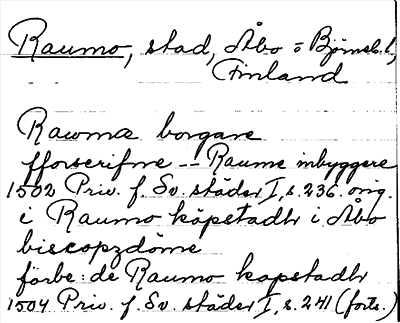 Raumo, stad, Åbo o Björneb. l,
Finland
Rawmæ borgare
fforscrifne -- Raume inbyggere
1502 Priv. f. Sv. städer I, s. 236. orig.
i Raumo köpstadh i Åbo
biscopzdöme
förbe: de Raumo kopstadh
1504 Priv. f. Sv. städer I, s. 241 (forts.)